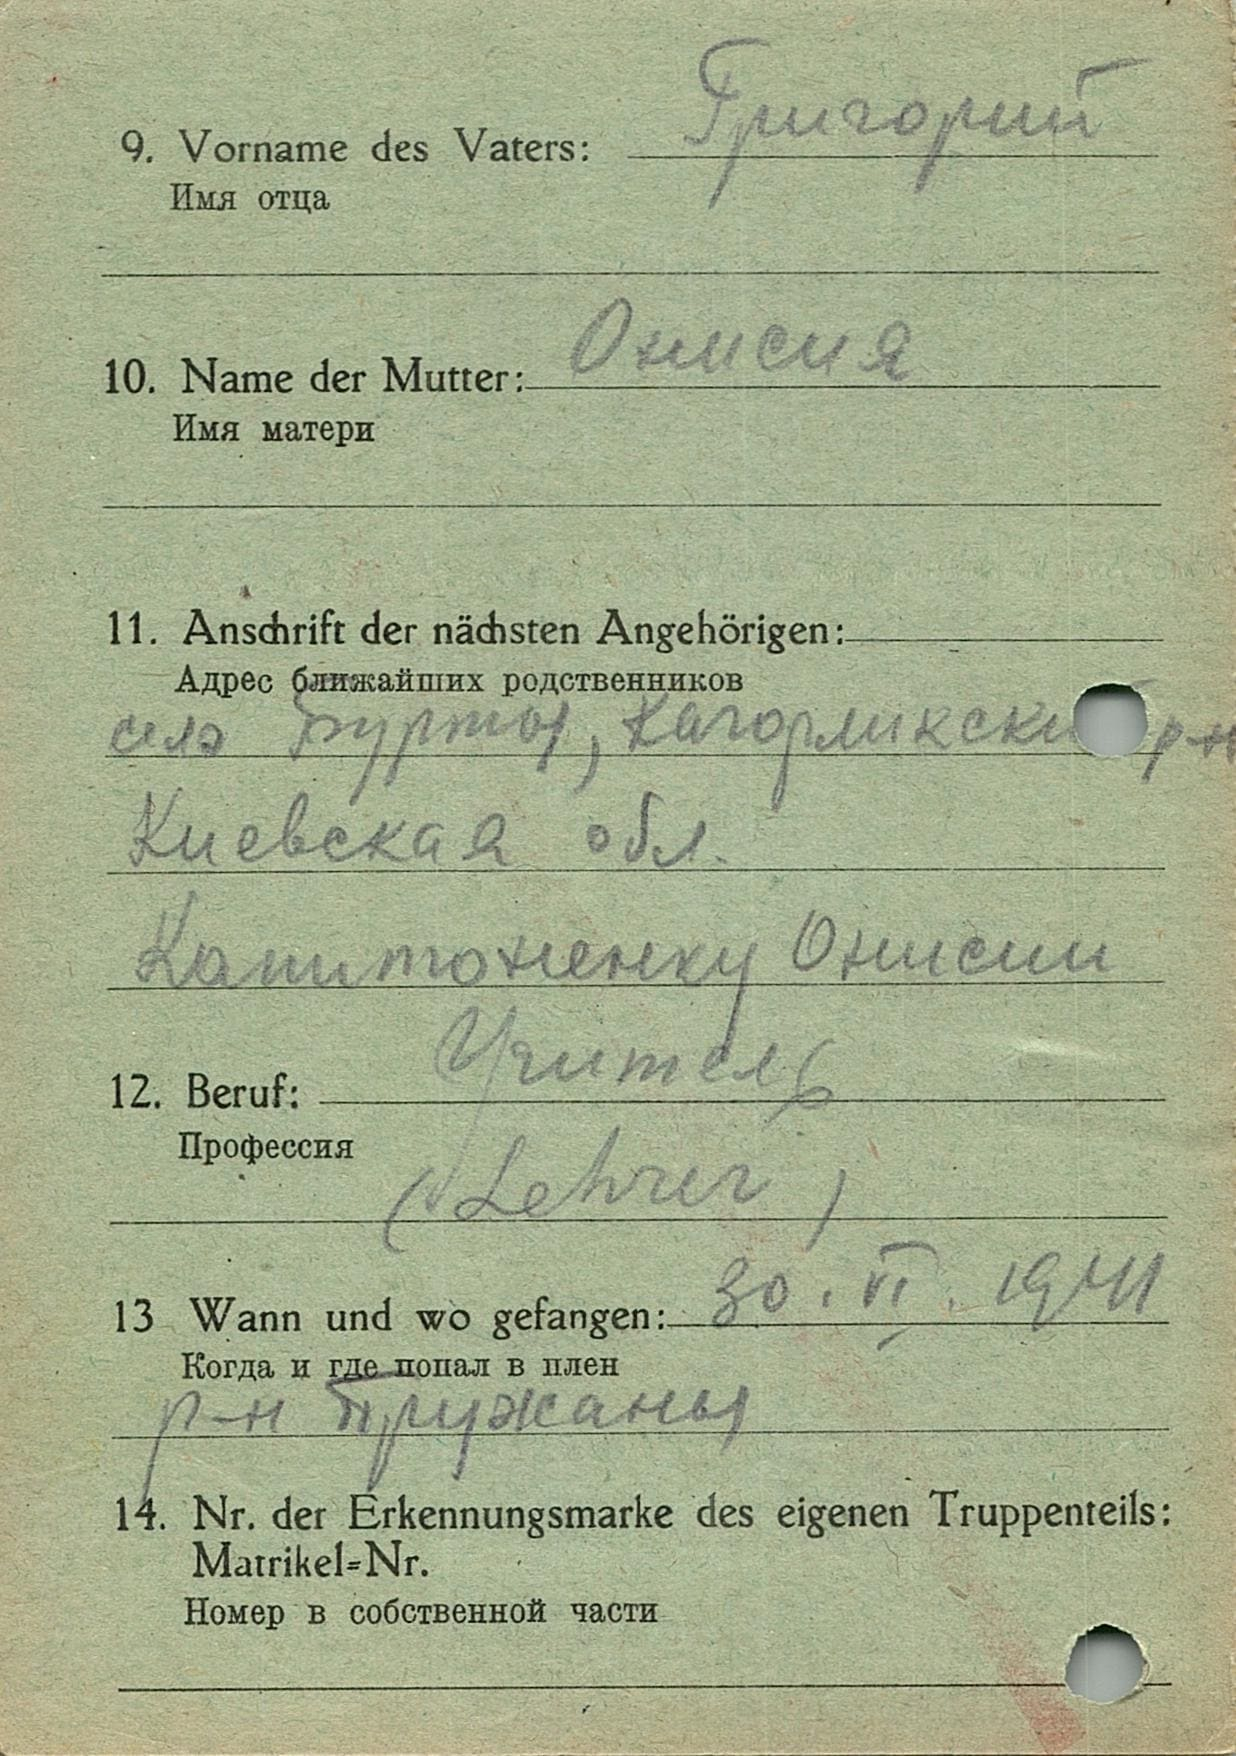 9. Vorname des Vaters: Григорий
Имя отца
10. Name der Mutter: Онисия
Имя матери
11. Anschrift der nächsten Angehörigen:
Адрес ближайших родственников
село Бурты, Кагорликский р-н
Киевская обл.
Капитоненку Онисии
12. Beruf: Учитель
Профессия
(Lehrer)
13 Wann und wo gefangen: 30. VI. 1941
Когда и где попал в плен
р-н Пружаны
14. Nr. der Erkennungsmarke des eigenen Truppenteils:
Matrikel=Nr.
Номер в собственной части